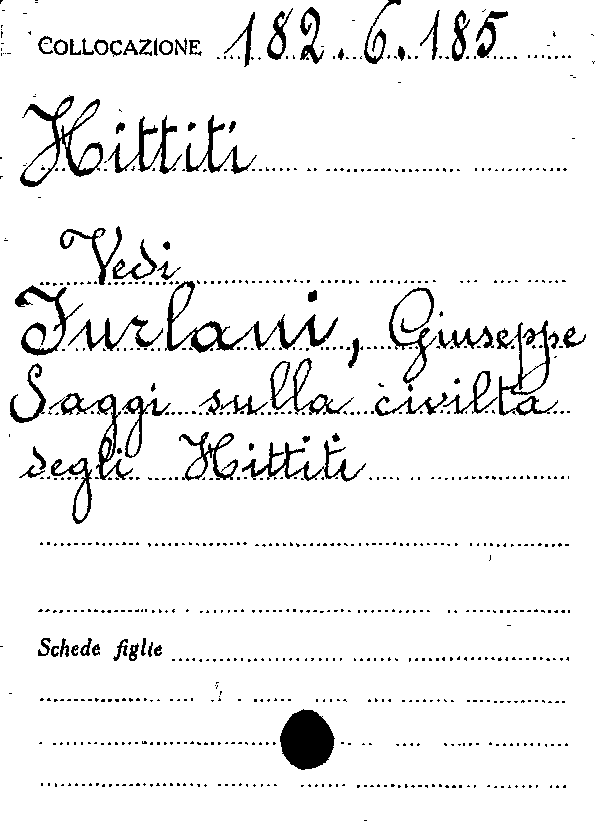 COLLOCAZIONE 182.6.185
Hittiti
Vedi
Furlani, Giuseppe
Saggi sulla civiltà
degli Hittiti
Schede figlie